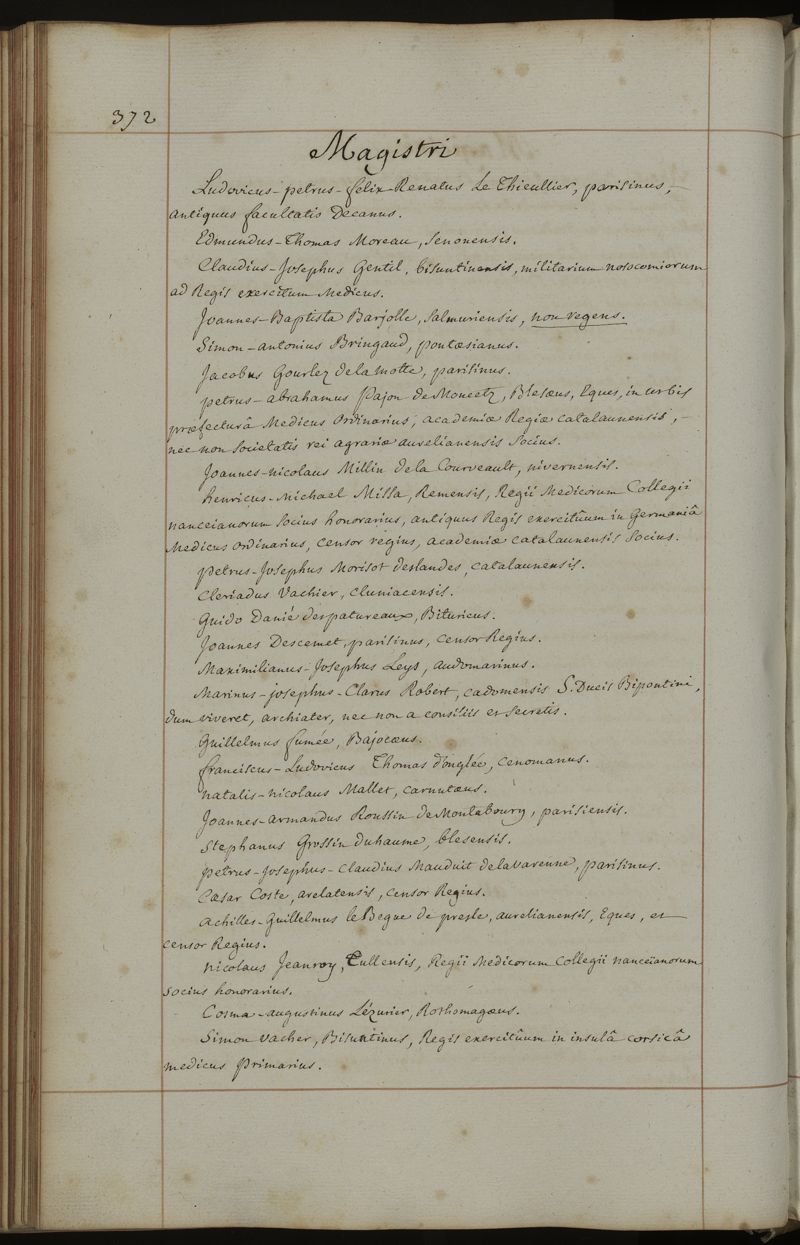 372
Magistri
Ludovicus-petrus-felix-Renatus Le Thieullier, parisinus,
antiquus facultatis Decanus.
Edmundus-Thomas Moreau, Senonensis.
Claudius-Josephus Gentil, bisuntinensis, militarium nosocomiorum
ad Regis exercitum Medicus.
Joannes-Baptista Barjolle, Salmuriensis, non regens.
Simon-antonius Bringaud, pontæsianus.
Jacobus Gourlez delamotte, parisinus.
petrus-abrahamus Pajon de Moncetz, Blesæus, Eques, in urbis
præfecturâ Medicus Ordinarius, academiæ Regiæ catalaunensis,
nec non societatis rei agrariæ aurelianensis Socius.
Joannes-nicolaus Millin de la Courveault, nivernensis.
henricus-Michael Missa, Remensis, Regii Medicorum Collegii
nanceianorum Socius honorarius, antiquus Regis exercitûum in Germaniâ
Medicus ordinarius, censor regius, academiæ catalaunensis Socius.
petrus-Josephus Morisot deslandes, catalaunensis.
Cleriadus Vachier, cluniacensis.
Guido Danié despatureaux, Bituricus.
Joannes Descemet, parisinus, censor Regius.
Maximilianus-Josephus Leys, audomarinus.
Marinus-josephus-Clarus Robert, cadomensis S. Ducis Bipontini,
dum viveret, archiater, nec non a consiliis et secretis.
Guillelmus fumée, Bajocæus.
franciscus-Ludovicus Thomas d'onglée, cenomanus.
natalis-nicolaus Mallet, carnutæus.
Joannes-armandus Roussin de Montabourg, parisiensis.
Stephanus Grossin duhaume, blesensis.
petrus-Josephus-Claudius Mauduit delavarenne, parisinus.
Cæsar Coste, arelatensis, censor Regius.
achilles-Guillelmus le Begue de presle, aurelianensis, Eques, et
censor Regius.
nicolaus Jeanroy, Tullensis, Regii Medicorum Collegii nanceïanorum
Socius honorarius.
Cosma-augustinus Lézurier, Rothomagæus.
Simon vacher, Bisuntinus, Regis exercitûum in insulâ corsicâ
medicus primarius.